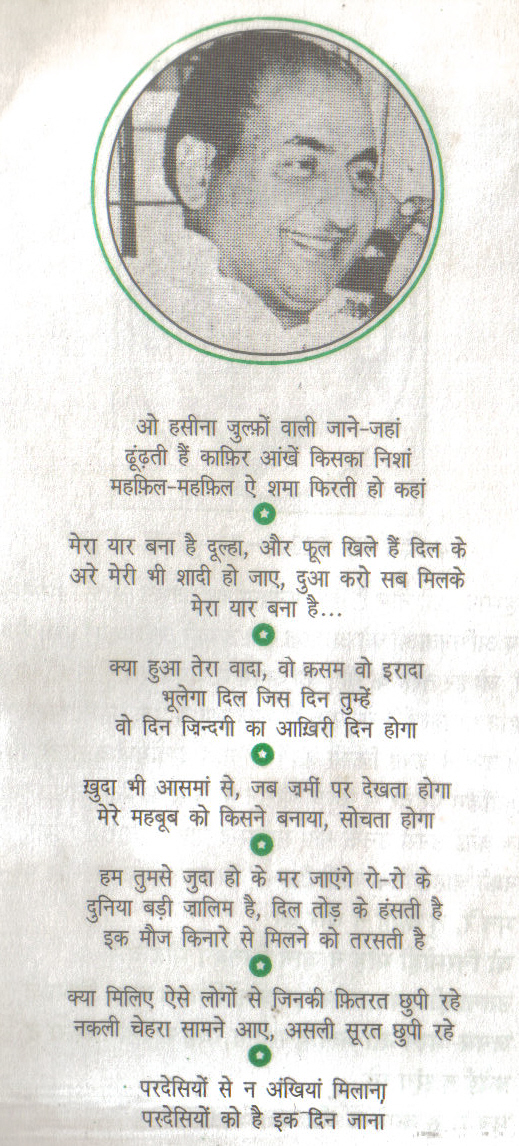 ओ हसीना ज़ुल्फ़ों वाली जाने-जहां
ढूंढ़ती हैं काफ़िर आंखें किसका निशां
महफ़िल-महफ़िल ऐ शमा फिरती हो कहां
मेरा यार बना है दूल्हा, और फूल खिले हैं दिल के
अरे मेरी भी शादी हो जाए, दुआ करो सब मिलके
मेरा यार बना है...
क्या हुआ तेरा वादा, वो क़सम वो इरादा
भूलेगा दिल जिस दिन तुम्हें
वो दिन ज़िन्दगी का आख़िरी दिन होगा
ख़ुदा भी आसमां से, जब ज़मीं पर देखता होगा
मेरे महबूब को किसने बनाया, सोचता होगा
हम तुमसे जुदा हो के मर जाएंगे रो-रो के
दुनिया बड़ी ज़ालिम है, दिल तोड़ के हंसती है
इक मौज किनारे से मिलने को तरसती है
क्या मिलिए ऐसे लोगों से जिनकी फ़ितरत छुपी रहे
नकली चेहरा सामने आए, असली सूरत छुपी रहे
परदेसियों से न अंखियां मिलाना
परदेसियों को है इक दिन जाना